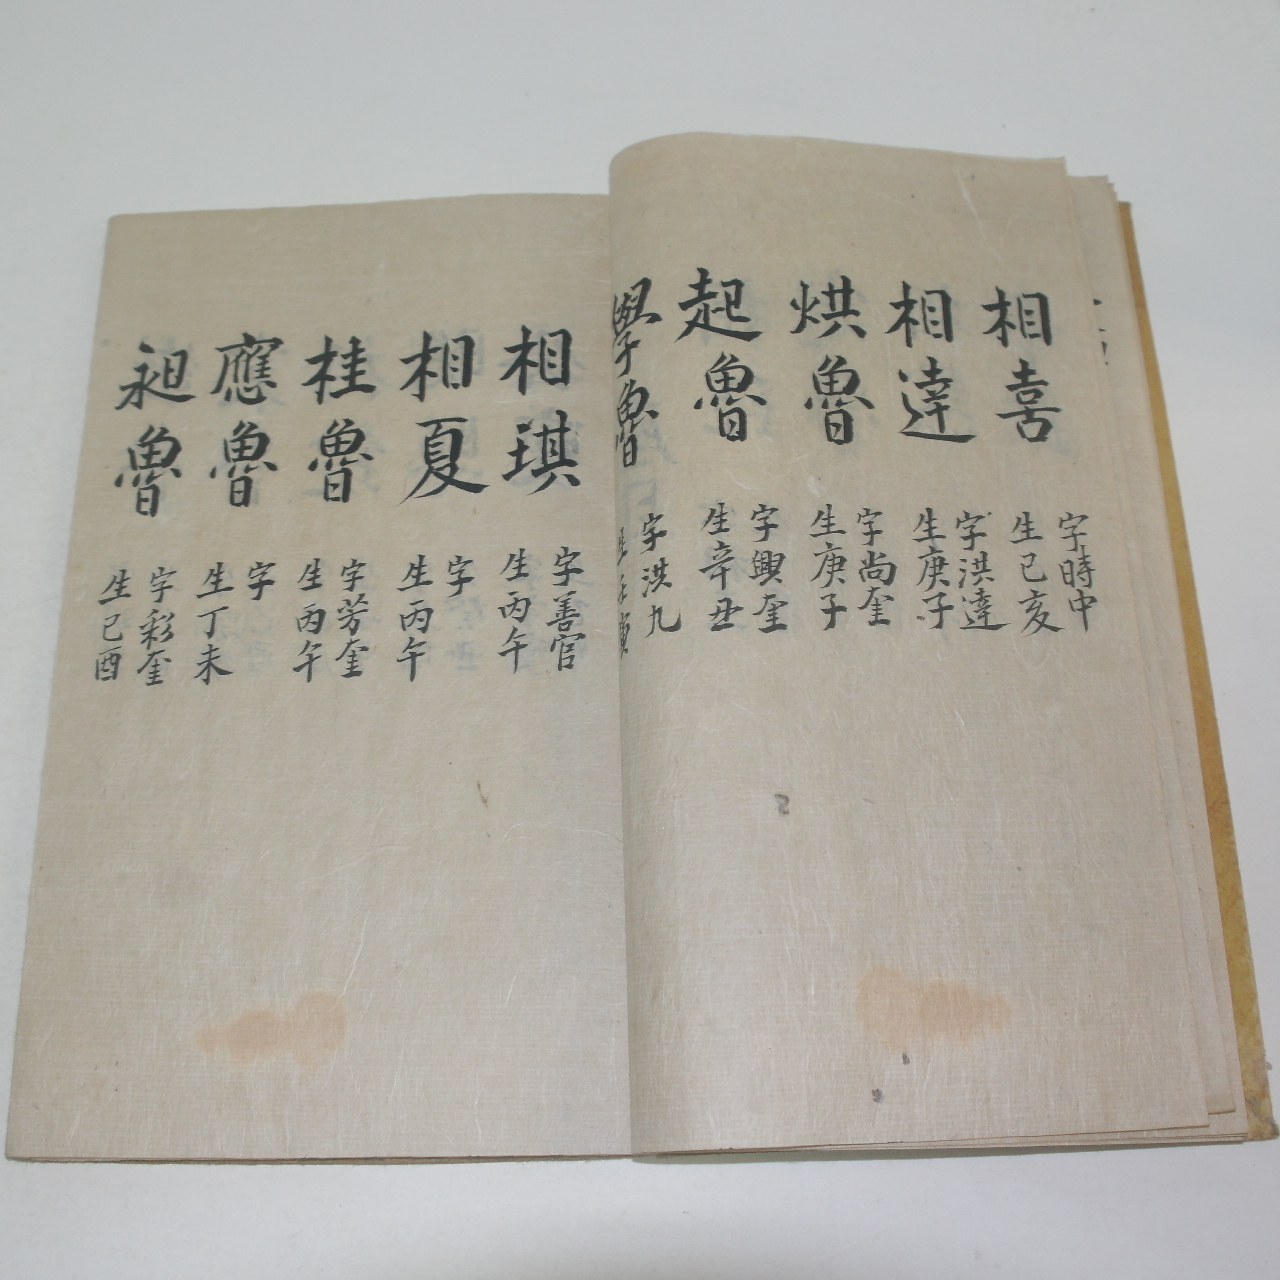 相喜
字時中
生己亥
相達
字洪達
生庚子
烘魯
字尚奎
生庚子
起魯
字興奎
生辛丑
學魯
字洪九
生壬寅
相琪
字善官
生丙午
相夏
字
生丙午
桂魯
字芳奎
生丙午
應魯
字
生丁未
昶魯
字彩奎
生己酉